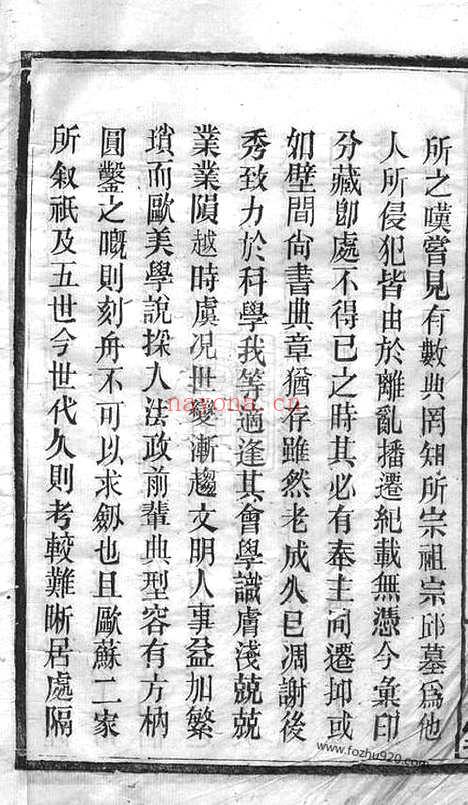 所之嘆嘗見有數典罔知所宗祖宗邱墓爲他
人所侵犯皆由於離亂播遷紀載無憑今彙印
分藏卽處不得已之時其必有奉主同遷抑或
如壁間尙書典章猶存雖然老成久已凋謝後
秀致力於科學我等適逢其會學識膚淺兢兢
業業隕越時虞况世變漸趨文明人事益加繁
瑣而歐美學說採入法政前輩典型容有方枘
圓鑿之嘅則刻舟不可以求劍也且歐蘇二家
所叙祇及五世今世代久則考較難晰居處隔
nayona.cn
www.fozhu920.com